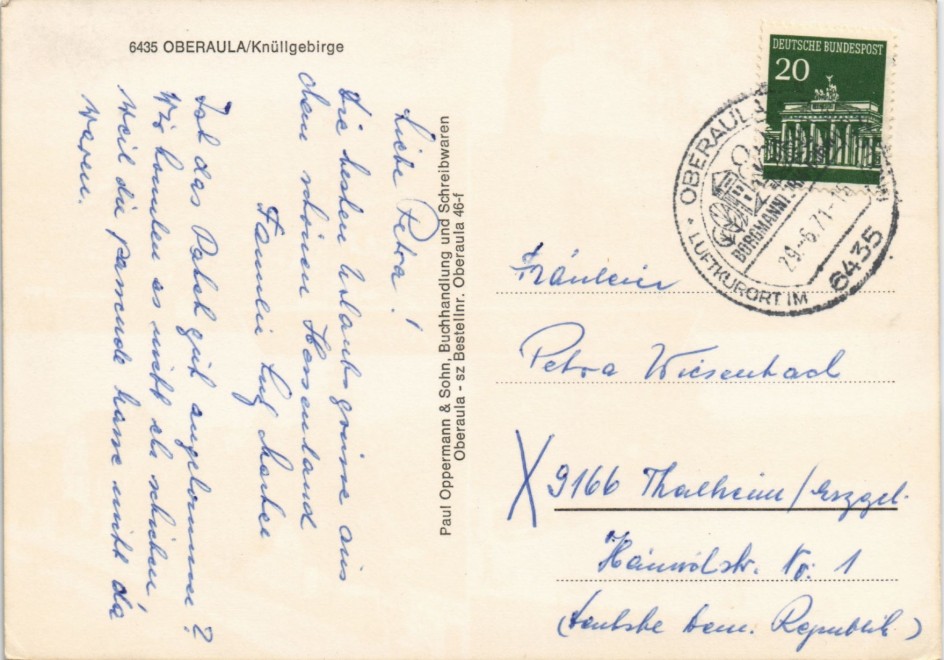 6435 OBERAULA/Knüllgebirge
Liebe Petra!
Die besten Urlaubsgrüsse aus
dem schönen Hessenland
Familie
Ist das Paket gut angekommen?
Wir konnten es nicht eh schicken!
weil die passende hasse nicht da
waren.
Paul Oppermann & Sohn, Buchhandlung und Schreibwaren
Oberaula - sz Bestellnr. Oberaula 46-f
DEUTSCHE BUNDESPOST
20
OBERAULA
BORGMANN
29.-6.71-16
LUFTKURORT IM
6435
Fräulein
Petra Wiesenbad
X 9166 Thalheim/Erzgeb.
Str. No: 1
(Deutsche Dem. Republik.)